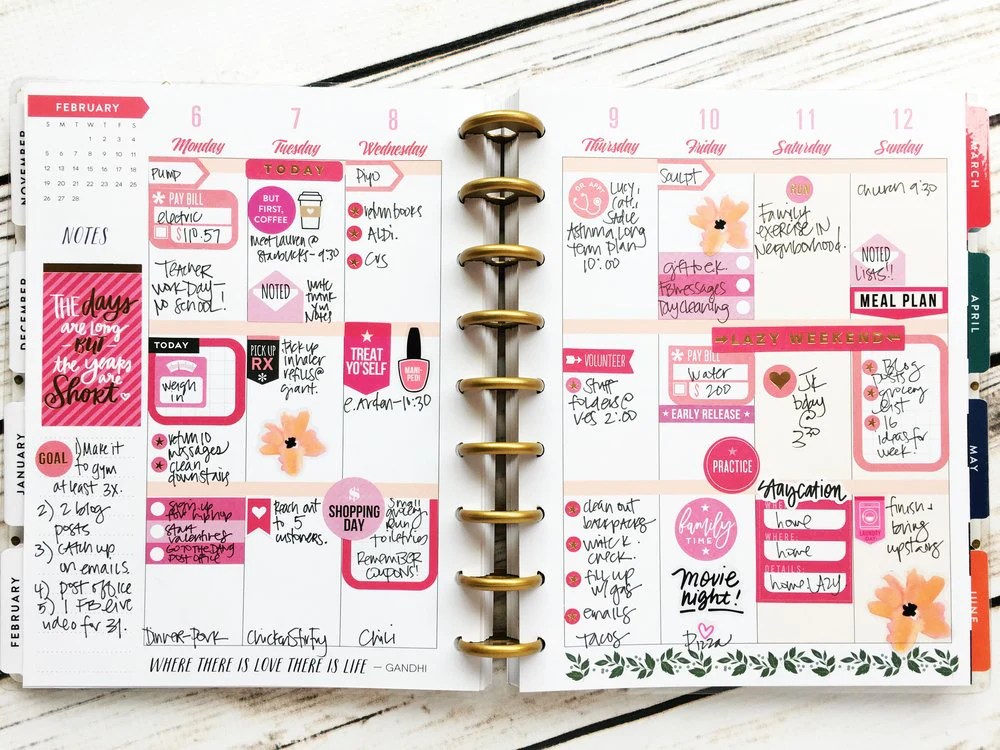 NOVEMBER
DECEMBER
JANUARY
FEBRUARY
FEBRUARY
S M T W T F S
1 2 3 4
5 6 7 8 9 10 11
12 13 14 15 16 17 18
19 20 21 22 23 24 25
26 27 28
NOTES
THE days
are long
BUT
the years
are
Short
GOAL
1) make it
to gym
at least 3x.
2) 2 blog
posts
3) catch up
on emails.
4) post office
5) 1 FB live
video for 31.
6
Monday
PUMP
PAY BILL
electric
$ 110.57
Teacher
work day-
no school!
TODAY
weigh
in
return 10
messages
clean
downstairs
sign up
for hip hop
start
valentines
GO TO THE DANG
POST OFFICE
Dinner-Pork
7
Tuesday
TODAY
BUT
FIRST,
COFFEE
meet Lauren @
Starbucks-9:30
NOTED
write
thank
you
notes
PICK UP
RX
pick up
inhaler
refills @
giant.
Reach out
to 5
customers.
Chicken Stir Fry
8
Wednesday
Piyo
return books
ALDI.
CVS
TREAT
YO'SELF
MANI-
PEDI
e. Arden-10:30
SHOPPING
DAY
small
grocery
run
toiletries
Remember
coupons!
Chili
WHERE THERE IS LOVE THERE IS LIFE — GANDHI
9
Thursday
DR APPT
Lucy,
Cati,
Sadie
Asthma long
term plan
10:00
VOLUNTEER
stuff
folders @
VES 2:00
clean out
backpacks
check.
fill up
w/gas
emails
Tacos
10
Friday
Sculpt
gift to ek.
FB messages
Day cleaning
LAZY WEEKEND
PAY BILL
water
$ 200
EARLY RELEASE
PRACTICE
family
TIME
MOVIE
night!
Pizza
11
Saturday
RUN
Family
exercise in
Neighborhood.
bday
@
3:30
Staycation
WHO:
home
WHERE:
home
DETAILS:
home LAZY
12
Sunday
church 9:30
NOTED
Lists!!
MEAL PLAN
Blog
posts
grocery
list
16
ideas for
week!
LAUNDRY
DAY!
finish +
bring
upstairs
MARCH
APRIL
MAY
JUNE